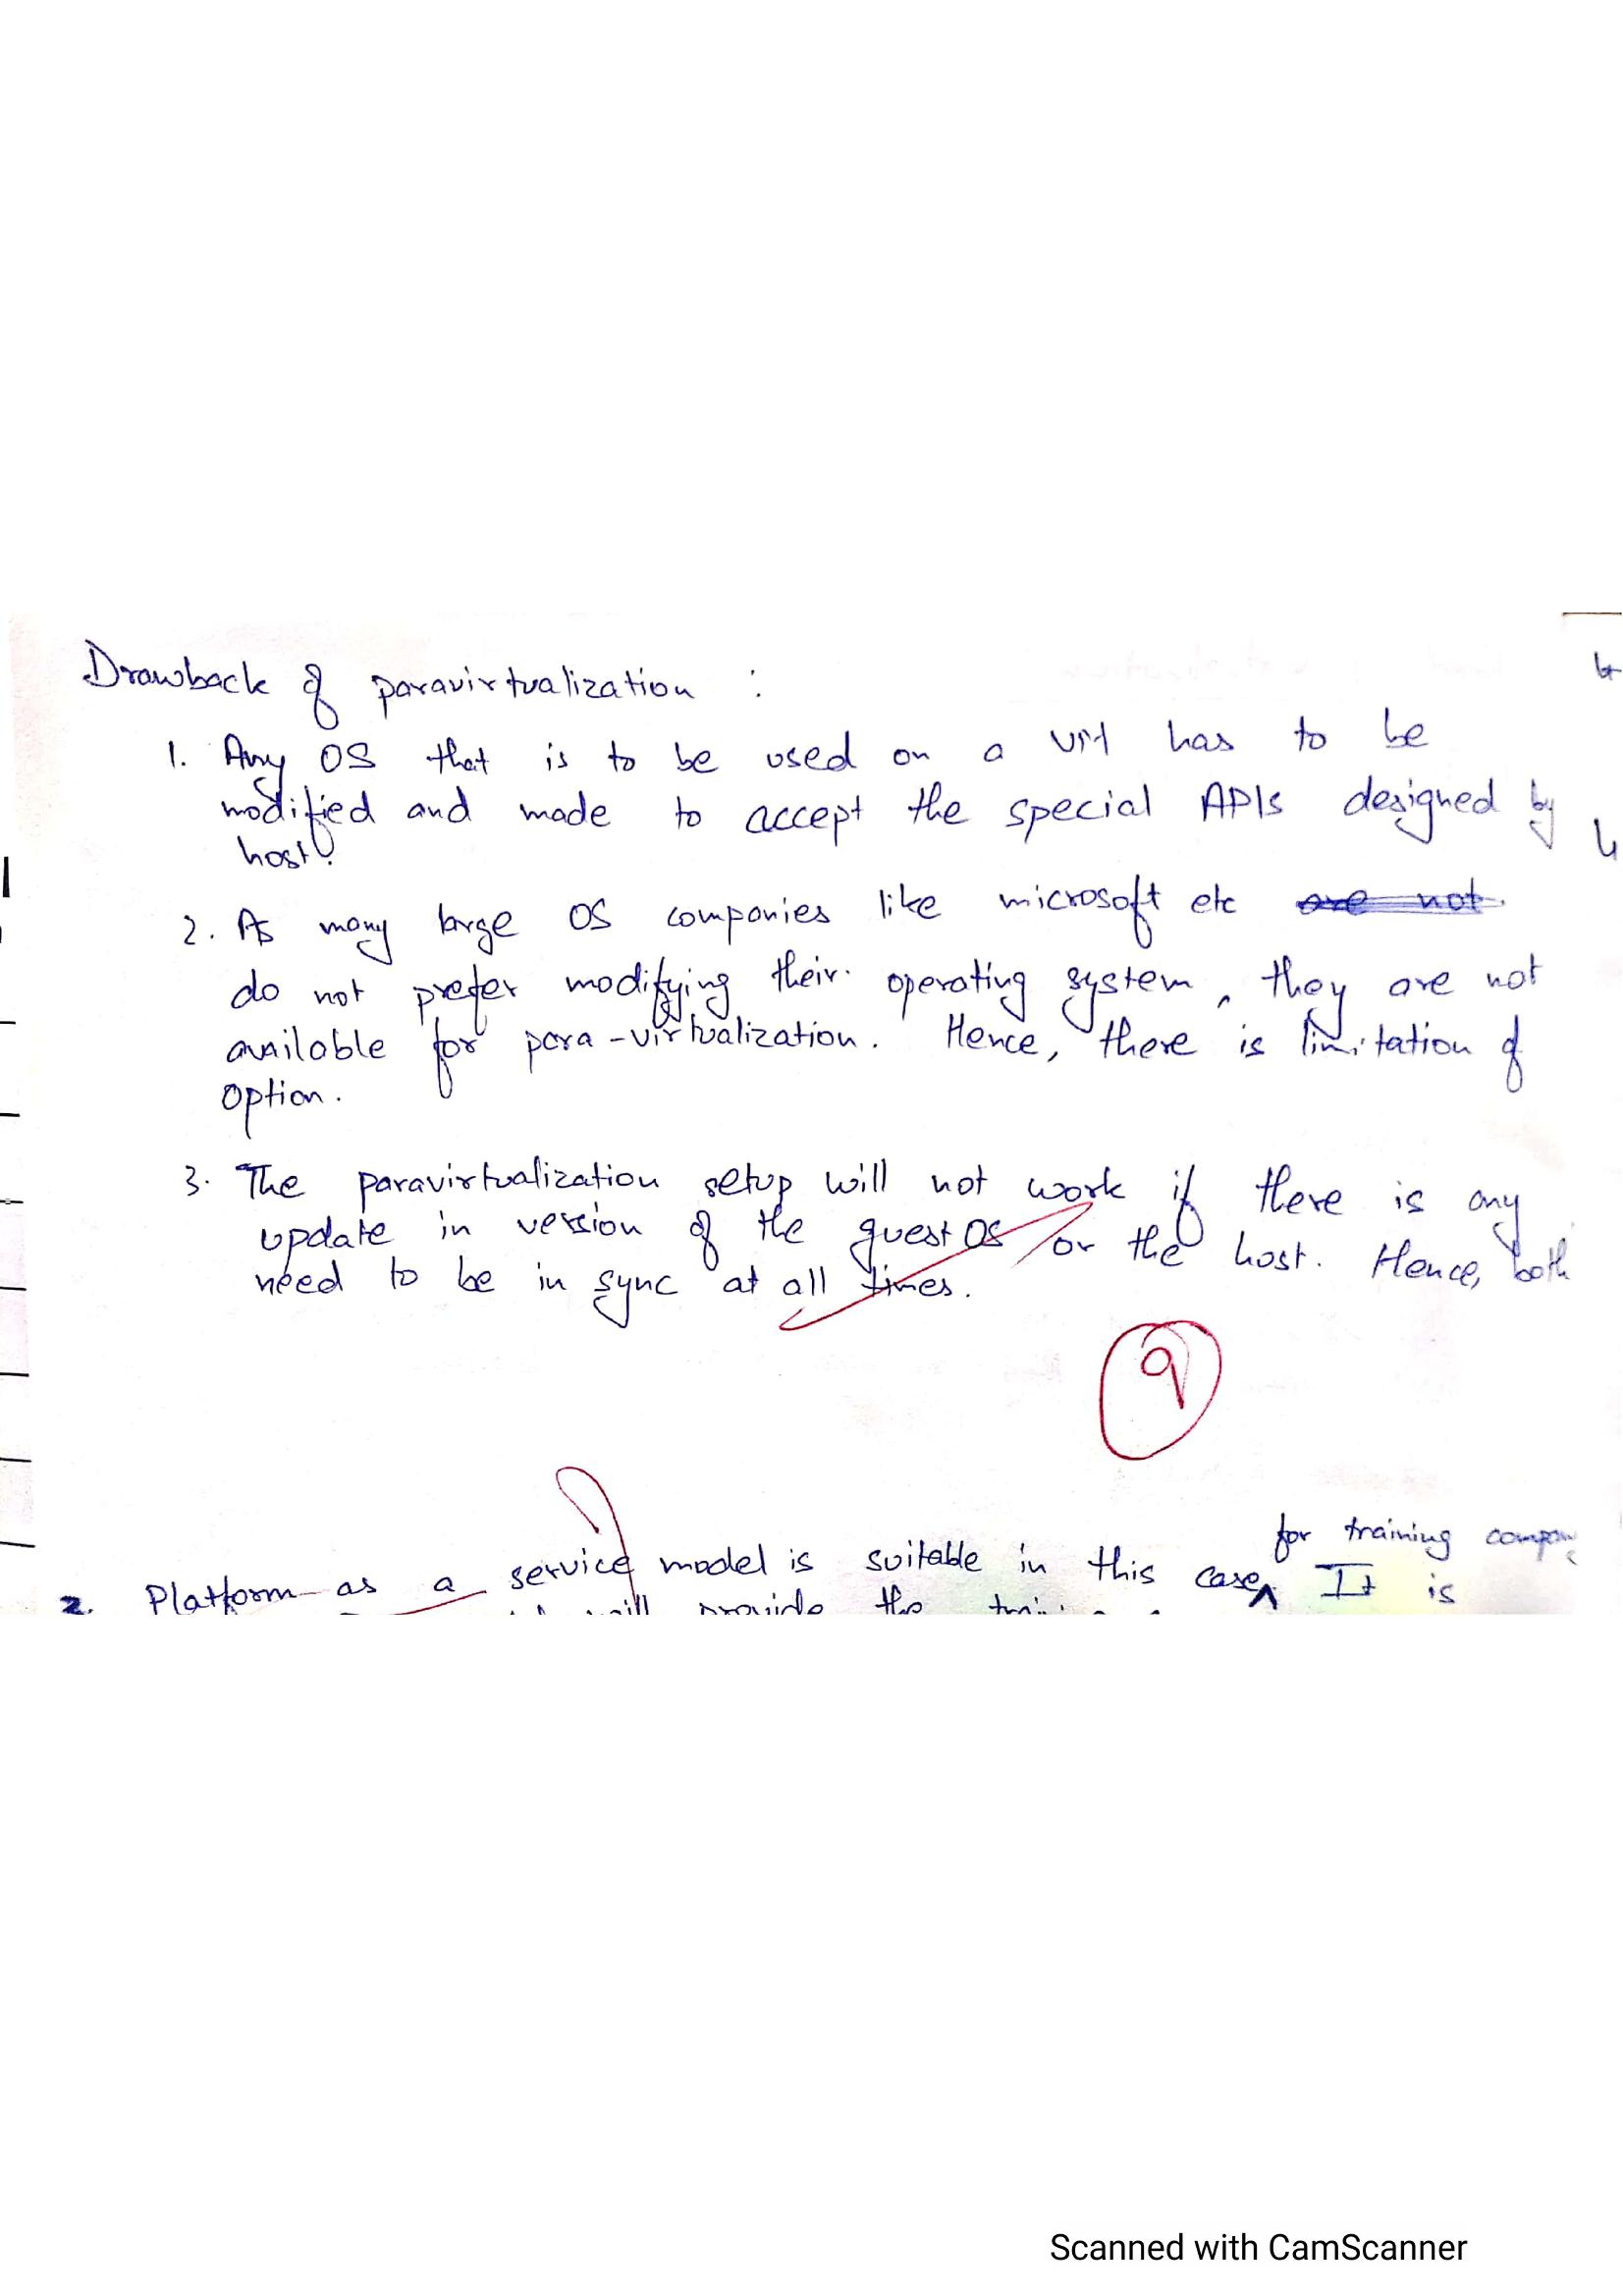 Drawback of paravirtualization :
1. Any OS that is to be used on a VM has to be
modified and made to accept the special APIs designed by
host.
2. As many large OS companies like microsoft etc are not
do not prefer modifying their operating system, they are not
available for para-virtualization. Hence, there is limitation of
option.
3. The paravirtualization setup will not work if there is any
update in version of the guest OS or the host. Hence, both
need to be in sync at all times.
9
for training
2. Platform as a service model is suitable in this case ^ It is
will provide the
Scanned with CamScanner